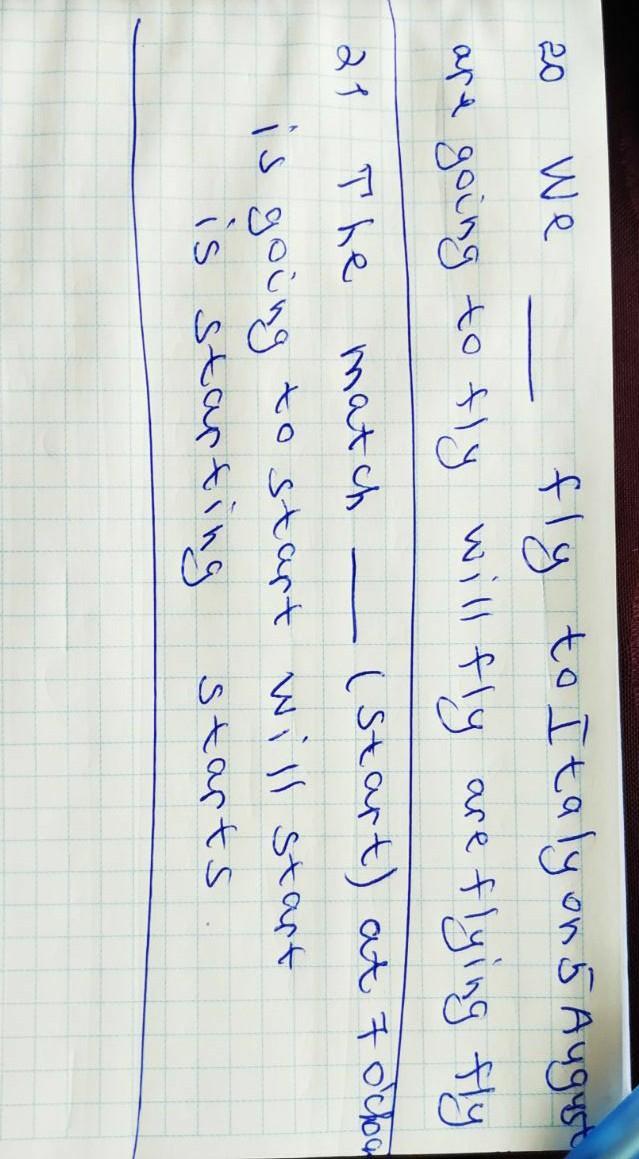 20 We ___ fly to Italy on 5 August
are going to fly will fly are flying fly
21 The match ___ (start) at 7
is going to start will start
is starting starts